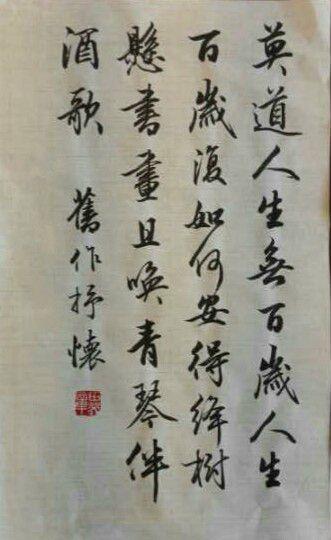 莫道人生無百歲人生
百歲復如何安得絳樹
懸書畫且喚青琴伴
酒歌 舊作抒懷